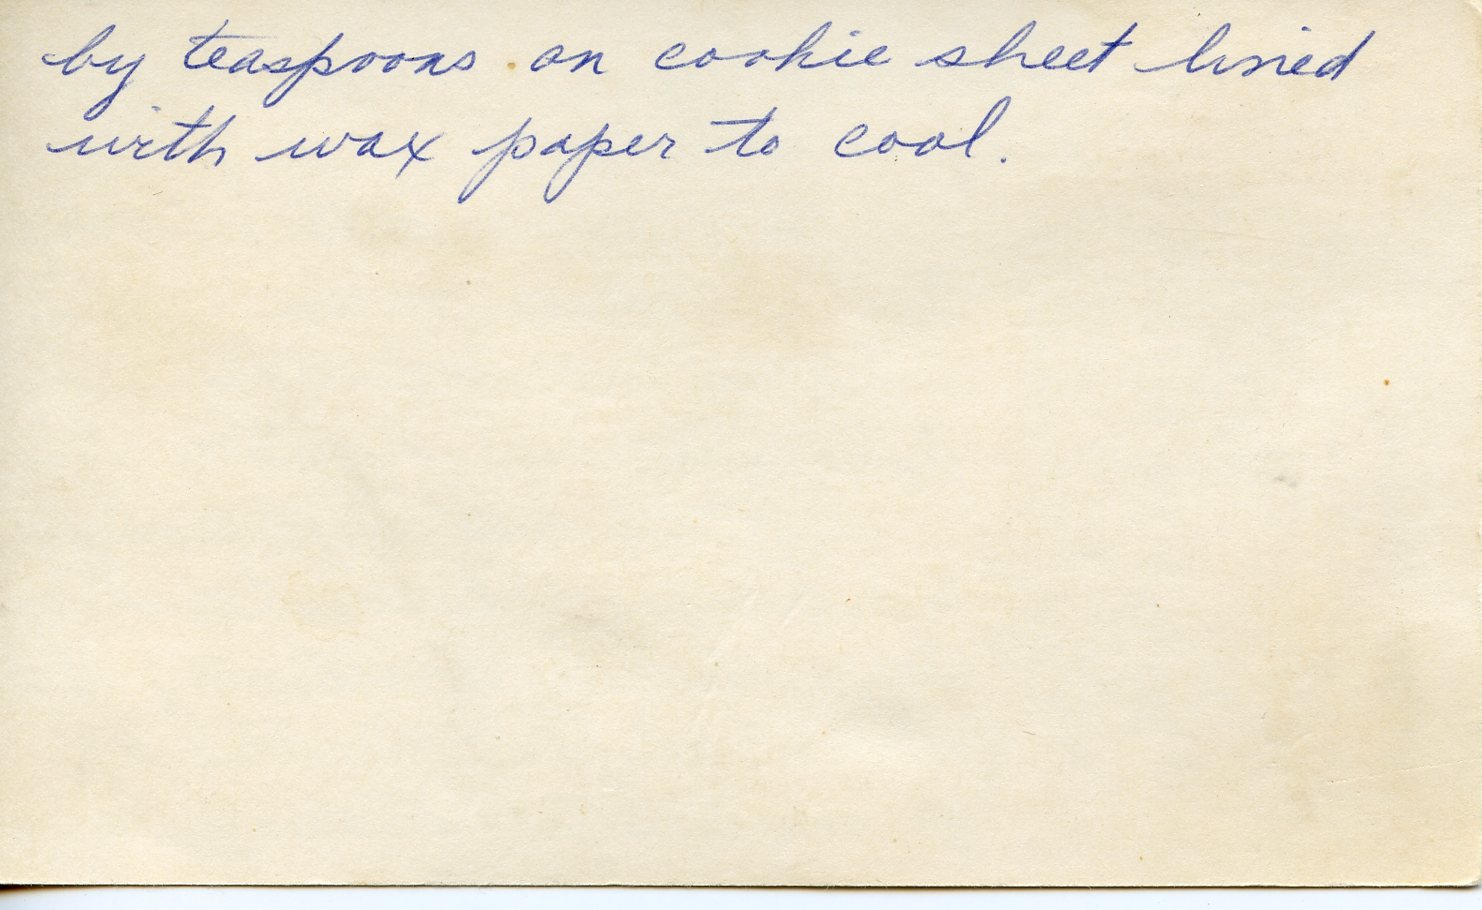 by teaspoons on cookie sheet lined
with wax paper to cool.